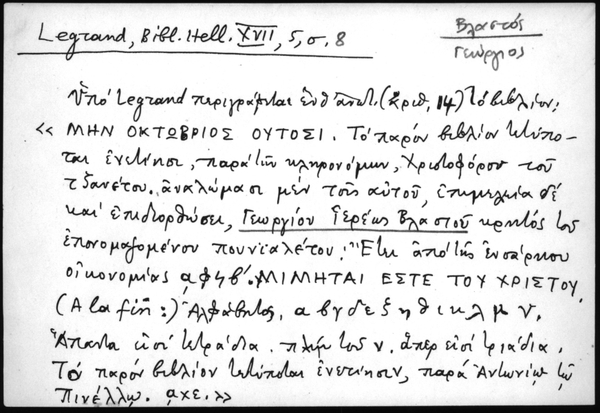 Legrand, Bibl. Hell. XVII, 5, σ. 8
Βλαστός
Γεώργιος
Ὑπό Legrand περιγράφεται ἐνθ' ἀνωτ. (ἀριθ. 14) τό βιβλίον:
<< ΜΗΝ ΟΚΤΩΒΡΙΟΣ ΟΥΤΟΣΙ. Τό παρόν βιβλίον τετύπο-
ται ἐνετίησι, παρά τῶν κληρονόμων, Χριστοφόρου τοῦ
τζανέτου. ἀναλώμασι μέν τοῖς αὐτοῦ, ἐπιμελεία δέ
καί ἐπιδιορθώσει, Γεωργίου Ἱερέως Βλαστοῦ κρητός τοῦ
ἐπονομαζομένου πουνιαλέτου. Ἔτει ἀπό τῆς ἐνσάρκου
οἰκονομίας αφϟβ'. ΜΙΜΗΤΑΙ ΕΣΤΕ ΤΟΥ ΧΡΙΣΤΟΥ.
(A la fin :) Ἀλφάβητος, α β γ δ ε ξ η θ ι κ λ μ ν.
Ἅπαντα εἰσί τετράδια. πλήν τοῦ ν. ἅπερ εἰσί τριάδια.
Τό παρόν βιβλίον τετύπωται ἐνετίησιν, παρά Ἀντωνίῳ τῷ
Πινέλλῳ. αχε. >>